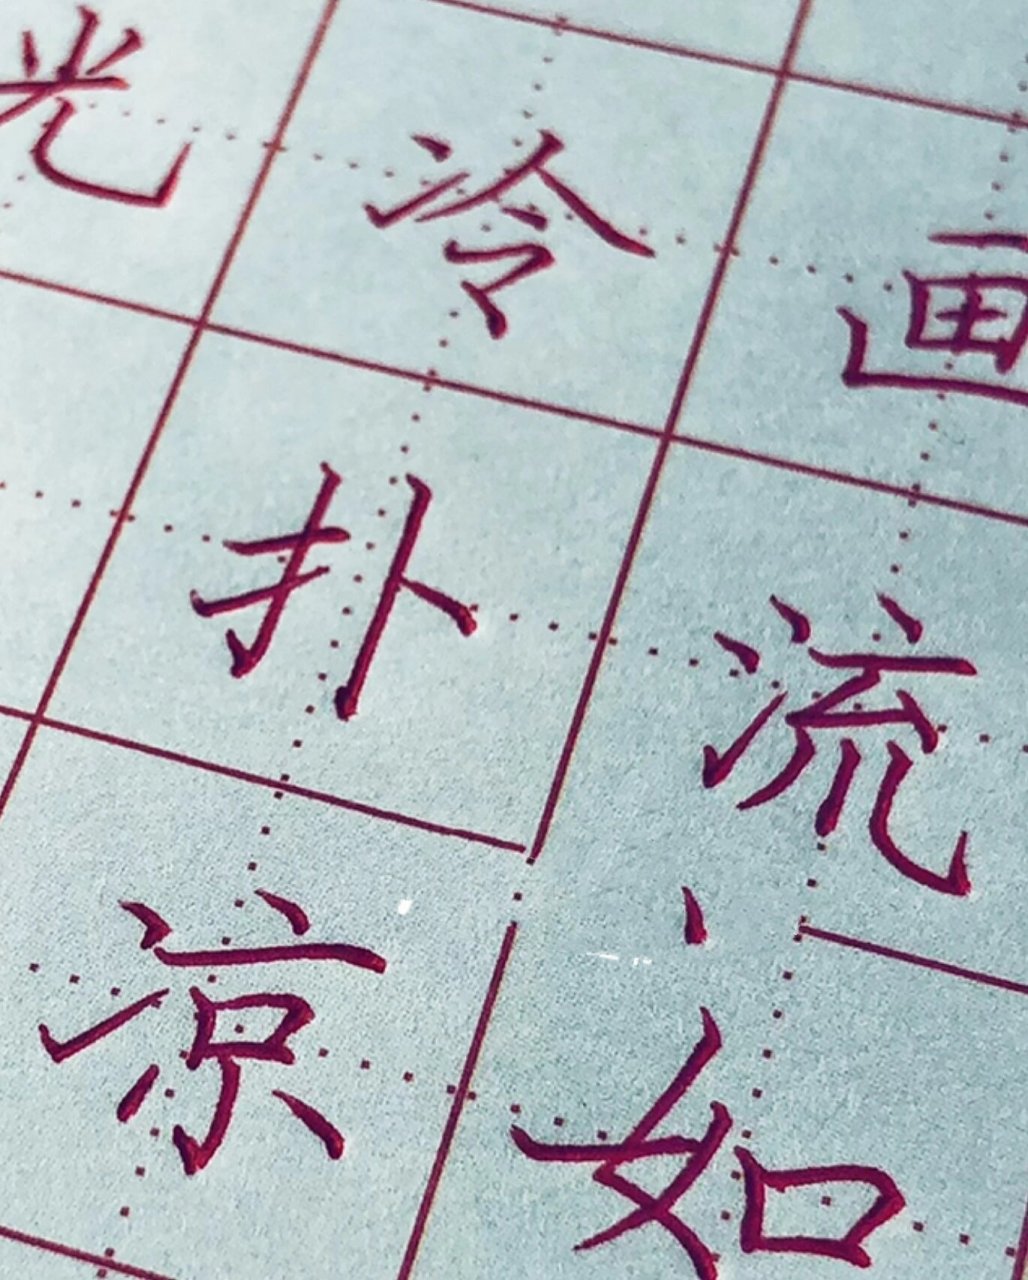 光冷画
扑流
凉如